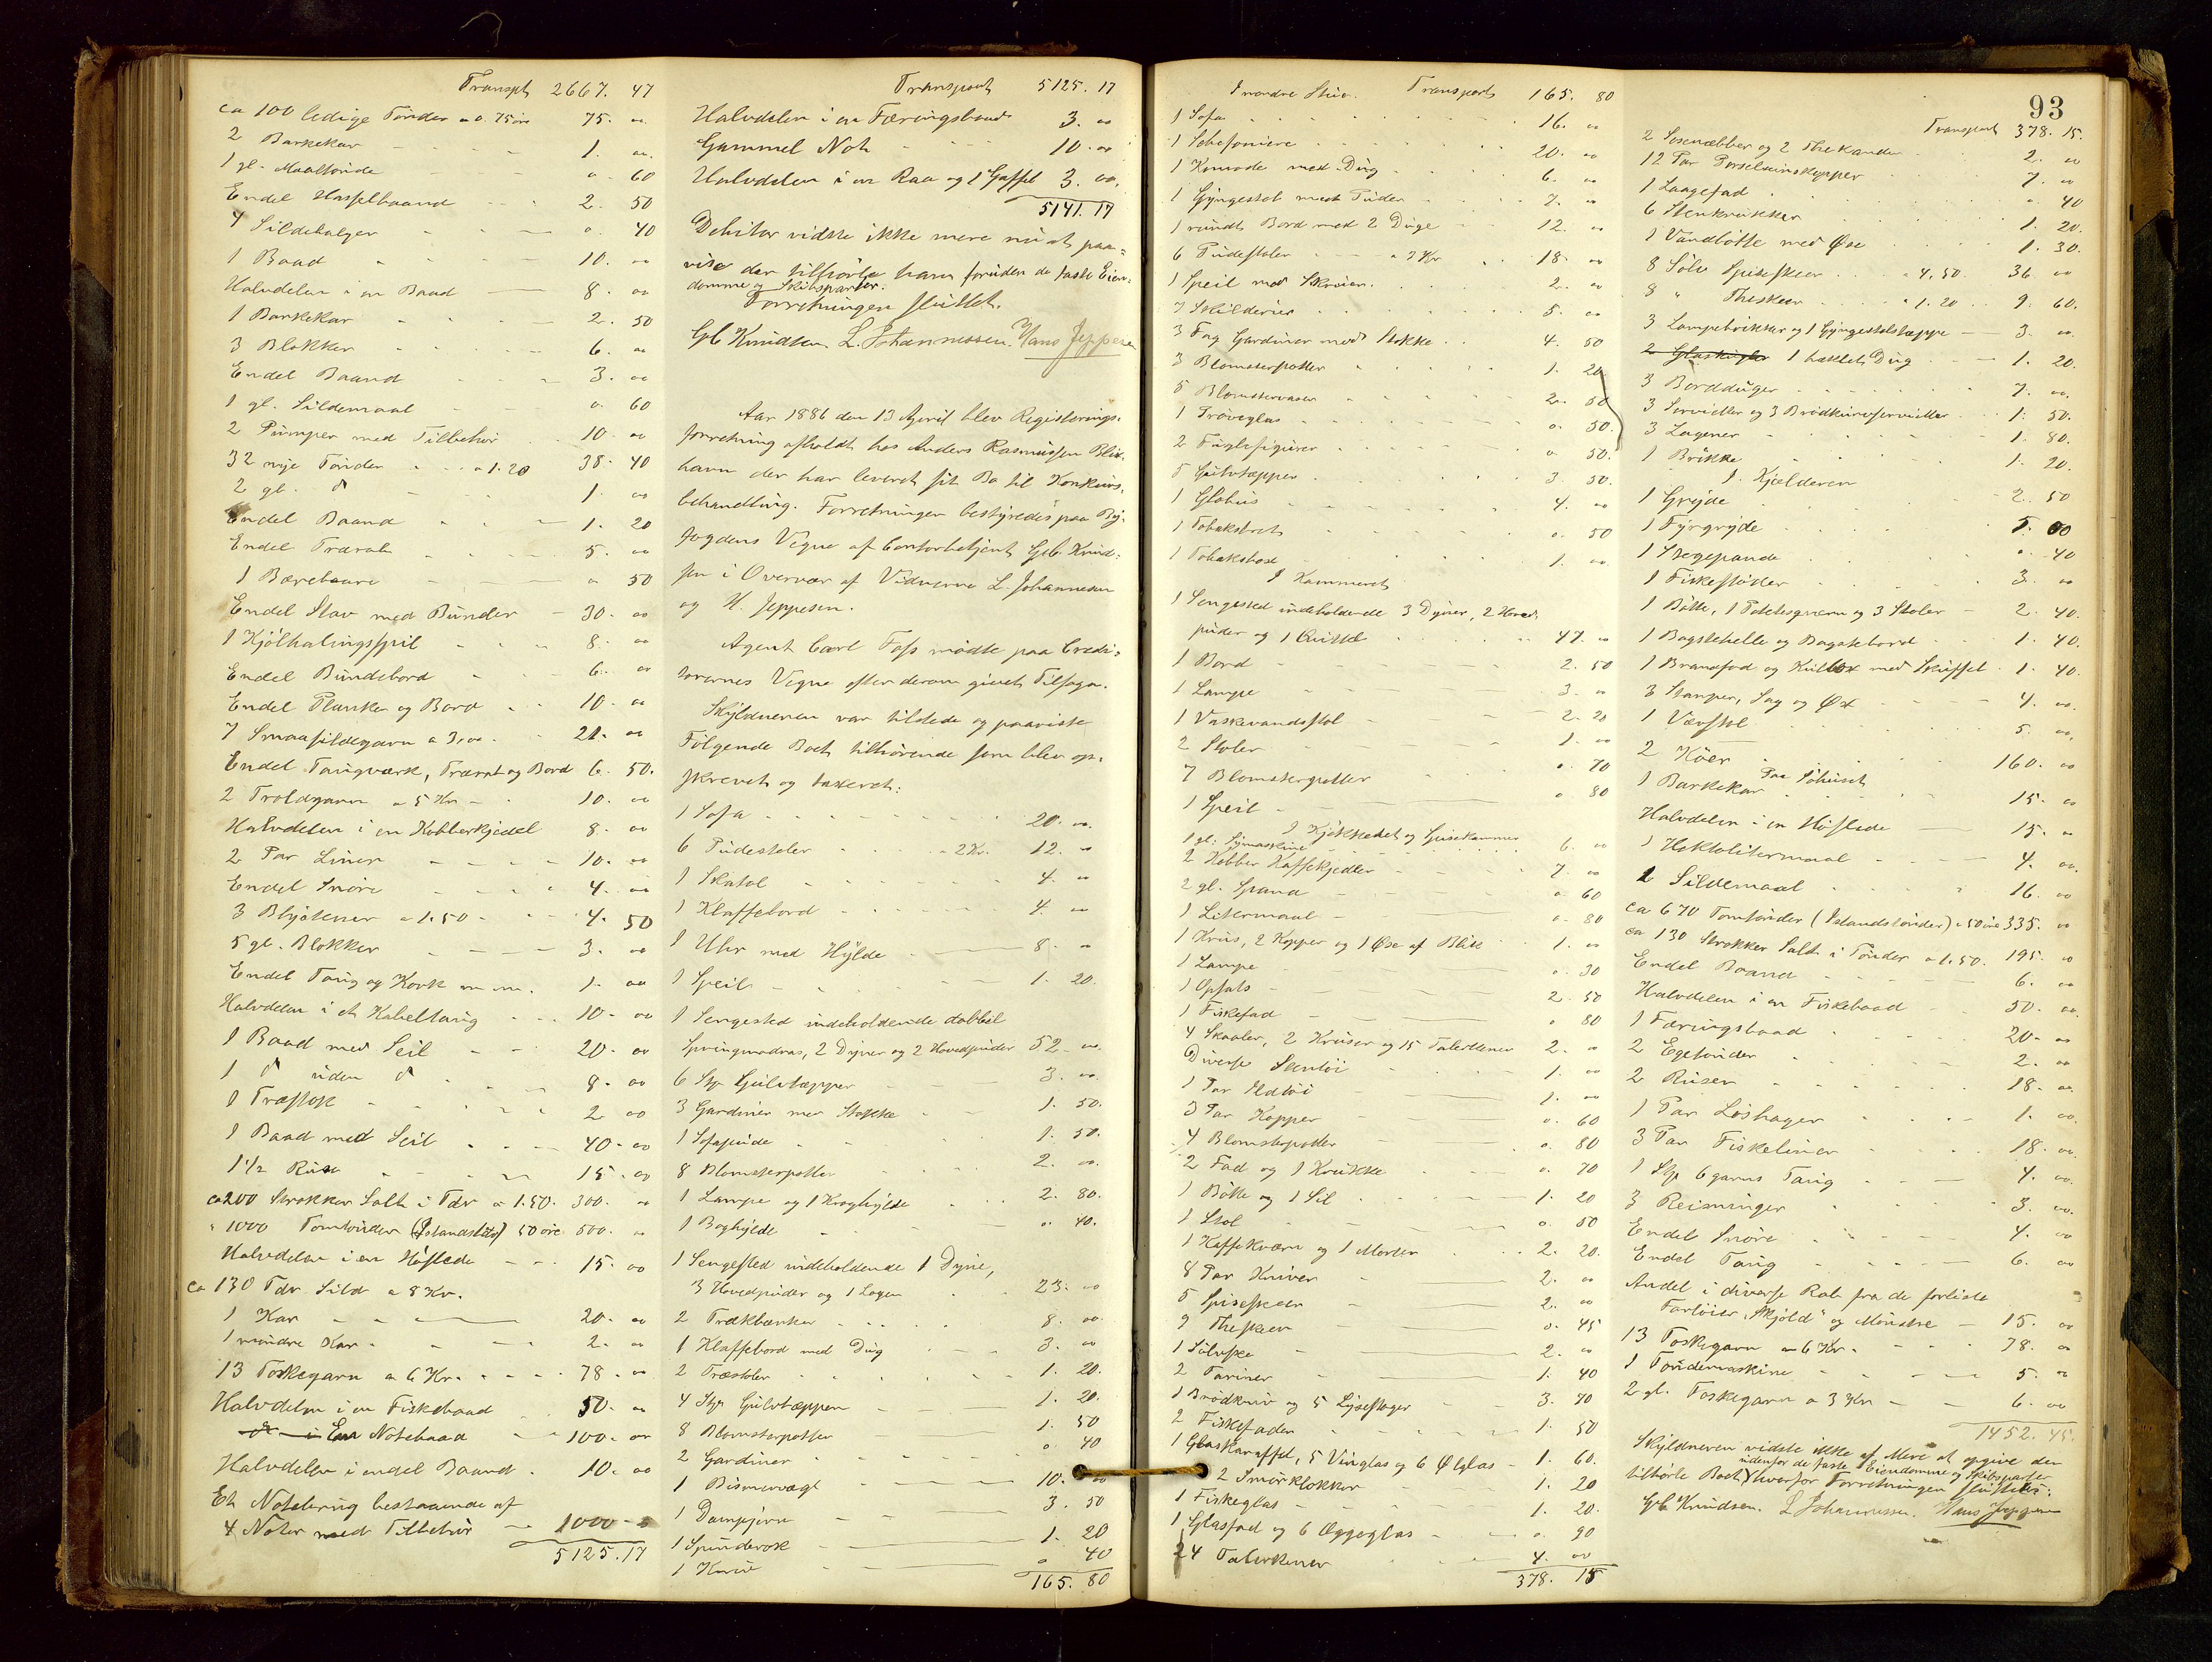 Transpt 2667. 47
ca 100 ledige Tønder a 0.75 øre 75. 00
2 Barkekar 1. 00.
1 gl. Maaltønde 0. 60
Endel Hasselbaand 2. 50
4 Sildebalger 0. 40
1 Baad 10. 00
Halvdelen i en Baad 8. 00
1 Barkekar 2. 50
3 Blokker 6. 00
Endel Baand 3. 00
1 gl. Sildemaal 0. 60
2 Pumper med Tilbehør 10. 00
32 nye Tønder a 1.20 38. 40
2 gl. d 1. 00
Endel Baand 1. 20
Endel Trærak 5. 00
1 Bærebaare 0 50
Endel Stav med Bunder 30. 00
1 Kjølhalingsspil 8. 00
Endel Bundebord 6. 00
Endel Planker og Bord 10. 00
7 Smaasildegarn a 3,00 21. 00
Endel Taugværk, Trærak og Bord 6. 50.
2 Troldgarn a 5 Kr 10. 00
Halvdelen i en Kobberkjedel 8. 00
2 Par Liner 10. 00
Endel Snøre 4. 00
3 Blystener a 1.50 4. 50
5 gl. Blokker 3. 00
Endel Taug og Kork m.m. 1. 00
Halvdelen i et Kabeltaug 10. 00
1 Baad med Seil 20. 00
1 d uden d 8. 00
1 Træstok 2 00
1 Baad med Seil 40. 00
1½ Ruse 15. 00
ca 200 Strokker Salt i Tdr a 1.50. 300. 00
" 1000 Tomtønder (Islandstdr) 50 øre 500. 00
Halvdelen i en Høstede 15. 00
ca 130 Tdr Sild a 8 Kr.
1 Kar 20. 00
1 mindre Kar 2. 00
13 Toskegarn a 6 Kr. 78. 00
Halvdelen i en Fiskebaad 50. 00
En Notebaad 100. 00
Halvdelen i endel Baand 10. 00
Et Notebrug bestaaende af
4 Nøter med Tilbehør 1000
5125. 17
Transport 5125. 17
Halvdelen i en Færingsbaad 3. 00
Gammel Not 10. 00
Halvdelen i en Raa og 1 Gaffel 3. 00.
5141. 17
Debitor vidste ikke mere nu at paa-
vise der tilhørte ham foruden de faste Eien-
domme og Skibsparter.
Forretningen sluttet.
Gb Knudsen L. Johannessen. Hans Jeppesen
Aar 1886 den 13 April blev Registrerings-
forretning afholdt hos Anders Rasmussen Blix-
havn der har leveret sit Bo til Konkurs-
behandling. Forretningen bestyredes paa By-
fogdens Vegne af Contorbetjent Gb. Knud-
sen i Overvær af Vidnerne L. Johannesen
og H. Jeppesen.
Agent Carl Foss mødte paa Credi-
torernes Vegne efter derom givet Tilsagn.
Skyldneren var tilstede og paaviste
Følgende Boet tilhørende som blev op-
skrevet og taxeret:
1 Sofa 20. 00.
6 Pudestoler a 2 Kr. 12. 00
1 Skatol 4. 00
1 Klaffebord 4. 00
1 Uhr med Hylde 8. 00
1 Speil 1. 20.
1 Sengested indeholdende dobbel
Springmadras, 2 Dyner og 2 Hovedpuder 52. 00.
6 Stp Gulvtæpper 3. 00.
3 Gardiner med Stokke 1. 50.
1 Sofapude 1. 50.
8 Blomsterpotter 2. 00.
1 Lampe og 1 Kroghylde 2. 80.
1 Boghylde 0. 40.
1 Sengested indeholdende 1 Dyne,
3 Hovedpuder og 1 Lagen 23. 00
2 Trækbænker 8. 00.
1 Klaffebord med Dug 3. 00
2 Træstoler 1. 20.
4 Stp Gulvtæpper 1. 20.
8 Blomsterpotter 1. 50
2 Gardiner 0 40
1 Bismervægt 10. 00
1 Dampjern 3. 50
1 Spinderok 1. 20
1 Kurv 0 40
165. 80
93
I nordre Stue. Transport 165. 80
1 Sofa 16. 00
1 Schefoniere 20. 00
1 Komode med Dug 6. 00
1 Gyngestol med Puder 7. 00
1 rundt Bord med 2 Duge 12. 00
6 Pudestoler a 3 Kr 18. 00
1 Speil med Skruen. 2. 00
7 Skilderier 5. 00
3 Fag Gardiner med Stokke 4. 50
3 Blomsterpotter 1. 20
5 Blomstervaser 2. 50
1 Prøveglas 0. 50.
2 Fuglefigurer 0 50.
5 Gulvtæpper 3 50.
1 Globus 4. 00
1 Tobaksbret 0. 50
1 Tobaksbox 1. 00
I Kammeret
1 Sengested indeholdende 3 Dyner, 2 Hoved-
puder og 1 Quiltel 47. 00
1 Bord 2. 50
1 Lampe 3. 00
1 Vaskevandsstol 2. 20
2 Stoler 1. 00
7 Blomsterpotter 0. 70
1 Speil 0 80
I Kjøkkenet og Spisekammer
1 gl. Symaskine 6. 00
2 Kobber Kaffekjedler 7. 00
2 gl. Spand 0 60
1 Litermaal 0. 80
1 Krus, 2 Kopper og 1 Øse af Blik 1. 00
1 Lampe 0. 30
1 Opsats 2. 50
1 Fiskefad 0 80
4 Skaaler, 2 Kruser og 15 Talerkener 2. 00
Diverse Stentøi 1. 00
1 Par Ildtøi 1. 00
3 Par Kopper 0. 60
4 Blomsterpotter 0. 80
2 Fad og 1 Krukke 0. 70
1 Bøtte og 1 Sil 1. 20
1 Stol 0. 50
1 Kaffekværn og 1 Morter 2. 20.
8 Par Kniver 2. 00
5 Spiseskeer 2. 00
9 Theskeer 0. 45
1 Sølvske 2. 00
2 Tariner 1. 40
1 Brødkniv og 5 Lysestager 3. 70
2 Fiskefader 1. 50
1 Glaskaraffel, 5 Vinglas og 6 Ølglas 1. 60.
2 Smørklokker 1. 20
1 Fiskeglas 1. 20.
1 Glasfad og 6 Æggeglas 0. 90
24 Talerkener 4. 00
378. 15
Transport 378. 15.
2 Sosenæbber og 2 Thekander 2. 00
12 Par Porselainskopper 7. 00
1 Laagefad 0 40
6 Stenkrukker 1. 20.
1 Vandbøtte med Øse 1. 30.
8 Sølv Spiseskeer a 4,50. 36. 00
8 " Theskeer a 1.20 9. 60.
3 Lampebrikker og 1 Gyngestolstæppe 3. 00.
1 hæklet Dug 1. 20.
3 Bordduger 7. 00.
3 Servietter og 3 Brødkurvservietter 1. 50.
3 Lagener 1. 80.
1 Brikke 1. 20.
I Kjælderen
1 Gryde 2. 50
1 Fyrgryde 5. 00
1 Stegepande 0. 40
1 Fiskestøder 3. 00
1 Bøtte, 1 Potetesqværn og 3 Stoler 2. 40.
1 Bagstehelle og Bagstebord 1. 40.
1 Brandfad og Kulbox med Skuffel 1. 40.
3 Stamper, Sag og Øx 4. 00.
1 Vævstol 5. 00.
2 Køer 160. 00
Paa Søhuset
1 Barkekar 15. 00
Halvdelen i en Høstede 15. 00
1 Hektolitermaal 4. 00.
2 Sildemaal 16. 00
ca 670 Tomtønder (Islandstønder) a 50 øre 335. 00
ca 130 Strokker Salt i Tønder a 1.50. 195. 00
Endel Baand 6. 00
Halvdelen i en Fiskebaad 50. 00.
1 Færingsbaad 20. 00
2 Egetønder 2. 00
2 Ruser 18. 00
1 Par Løshager 1. 00.
3 Par Fiskeliner 18. 00.
1 Stp 6 garns Taug 4. 00.
3 Reisninger 3. 00.
Endel Snøre 4. 00
Endel Taug 6. 00
Andel i diverse Rak fra de forliste
Fartøier "Skjold" og Mønstre 15. 00
13 Toskegarn a 6 Kr. 78. 00
1 Tøndemaskine 5. 00
2 gl. Toskegarn a 3 Kr 6. 00
1452. 45.
Skyldneren vidste ikke af Mere at opgive der
udenfor de faste Eiendomme og Skibsparter
tilhørte Boet, hvorfor Forretningen sluttedes.
Gb Knudsen. L Johannessen. Hans Jeppesen